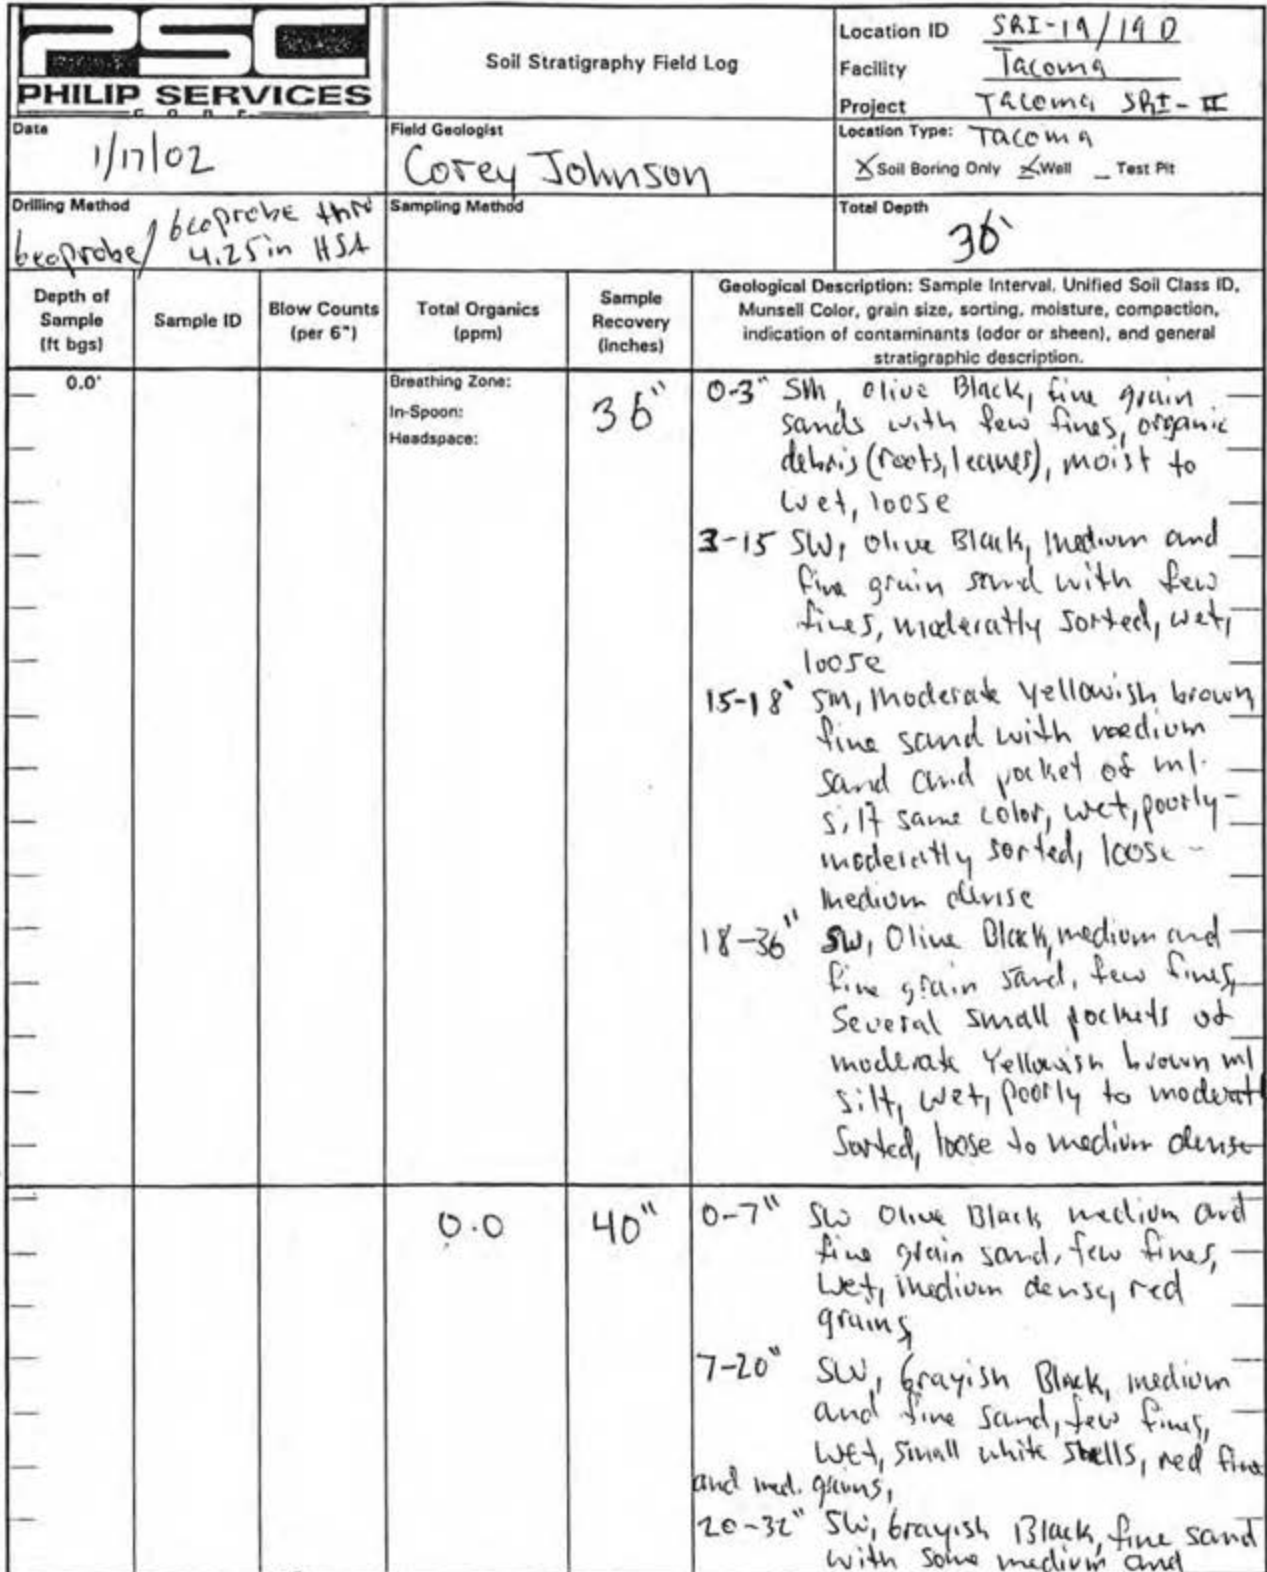 PSC
PHILIP SERVICES
CORP.
Soil Stratigraphy Field Log
Location ID SRI-19/19D
Facility Tacoma
Project Tacoma SRI-II
Date
1/17/02
Field Geologist
Corey Johnson
Location Type: Tacoma
X Soil Boring Only X Well _ Test Pit
Drilling Method
Geoprobe/ Geoprobe thru
4.25in HSA
Sampling Method
Total Depth
36'
Depth of
Sample
(ft bgs)
Sample ID
Blow Counts
(per 6")
Total Organics
(ppm)
Sample
Recovery
(inches)
Geological Description: Sample Interval, Unified Soil Class ID,
Munsell Color, grain size, sorting, moisture, compaction,
indication of contaminants (odor or sheen), and general
stratigraphic description.
0.0'
Breathing Zone:
In-Spoon:
Headspace:
36"
0-3" SM, Olive Black, fine grain
sands with few fines, organic
debris (roots, leaves), moist to
wet, loose
3-15 SW, Olive Black, medium and
fine grain sand with few
fines, moderatly sorted, wet,
loose
15-18" SM, Moderate Yellowish brown
fine sand with medium
sand and pocket of ml.
silt same color, wet, poorly-
moderatly sorted, loose-
medium dense
18-36" SW, Olive Black, medium and
fine grain sand, few fines,
Several small pockets of
moderate Yellowish brown ml
silt, wet, poorly to moderatl
Sorted, loose to medium dense
0.0
40"
0-7" SW Olive Black medium and
fine grain sand, few fines,
wet, medium dense, red
grains,
7-20" SW, Grayish Black, medium
and fine sand, few fines,
wet, small white shells, red fine
and med. grains,
20-32" SW, Grayish Black, fine sand
with some medium and